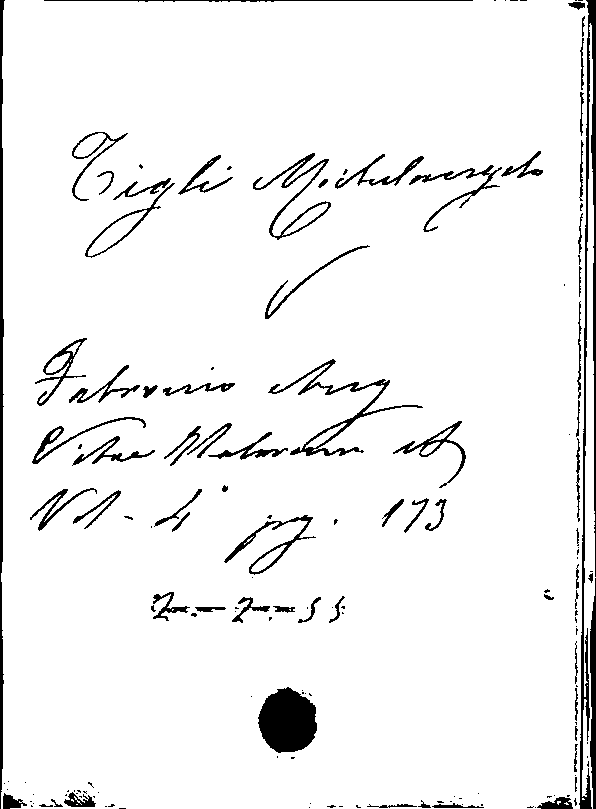 Tigli Michelangelo
Fabronio Ang
Vitae Italorum &
Vol - 4° pag. 173
2 - 2 - 55